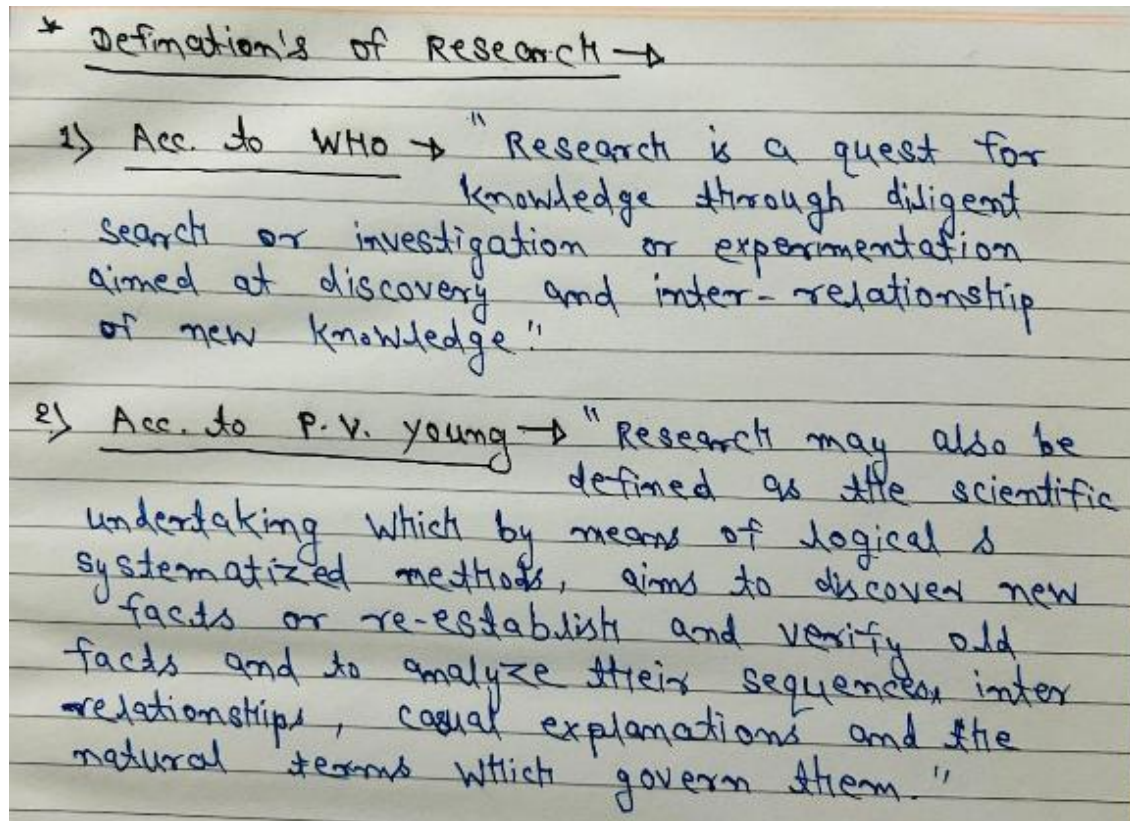 * Defination's of Research →
1) Acc. to WHO → "Research is a quest for
knowledge through diligent
search or investigation or experimentation
aimed at discovery and inter-relationship
of new knowledge"
2) Acc. to P.V. young → "Research may also be
defined as the scientific
undertaking which by means of logical &
systematized methods, aims to discover new
facts or re-establish and verify old
facts and to analyze their sequences, inter
relationships, casual explanations and the
natural terms which govern them."